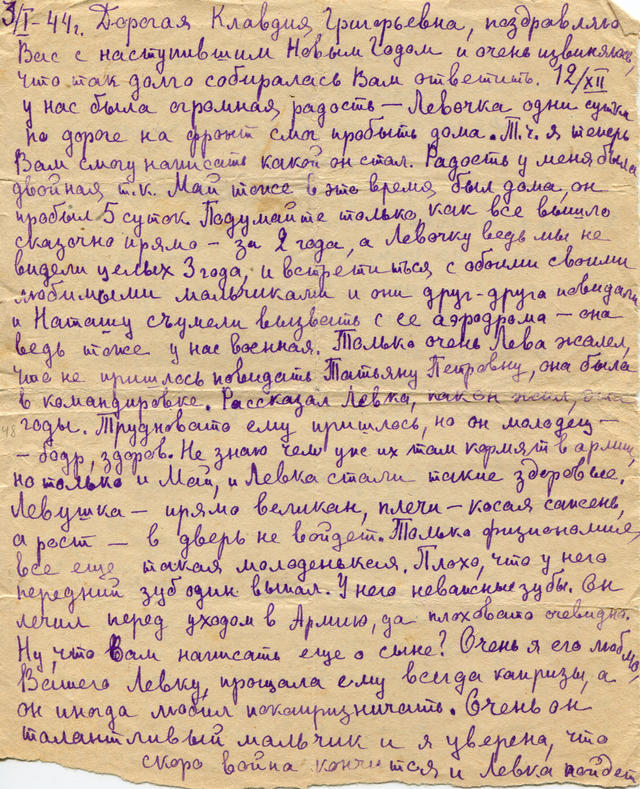 3/I-44г. Дорогая Клавдия Григорьевна, поздравляю
Вас с наступившим Новым Годом и очень извиняюсь,
что так долго собиралась Вам ответить. 12/XII
у нас была огромная радость – Левочка одни сутки
по дороге на фронт смог пробыть дома. Т.ч. я теперь
Вам смогу написать какой он стал. Радость у меня была
двойная т.к. Май тоже в это время был дома, он
пробыл 5 суток. Подумайте только, как все вышло
сказочно прямо – за 2 года, а Левочку ведь мы не
видели целых 3 года, и встретиться с обоими своими
любимыми мальчиками и они друг-друга повидали
и Наташу съумели вызвать с ее аэродрома – она
ведь тоже у нас военная. Только очень Лева жалел,
что не пришлось повидать Татьяну Петровну, она была
в командировке. Рассказал Левка, как он жил, эти
годы. Трудновато ему пришлось, но он молодец –
48
– бодр, здоров. Не знаю чем уже их там кормят в армии,
но только и Май, и Левка стали такие здоровые.
Левушка – прямо великан, плечи – косая сажень,
а рост – в дверь не войдет. Только физиономия,
все еще такая молоденькая. Плохо, что у него
передний зуб один выпал. У него неважные зубы. Он
лечил перед уходом в Армию, да плоховато очевидно.
Ну, что Вам написать еще о сыне? Очень я его люблю,
Вашего Левку, прощала ему всегда капризы, а
он иногда любил покапризничать. Очень он
талантливый мальчик и я уверена, что
скоро война кончится и Левка пойдет